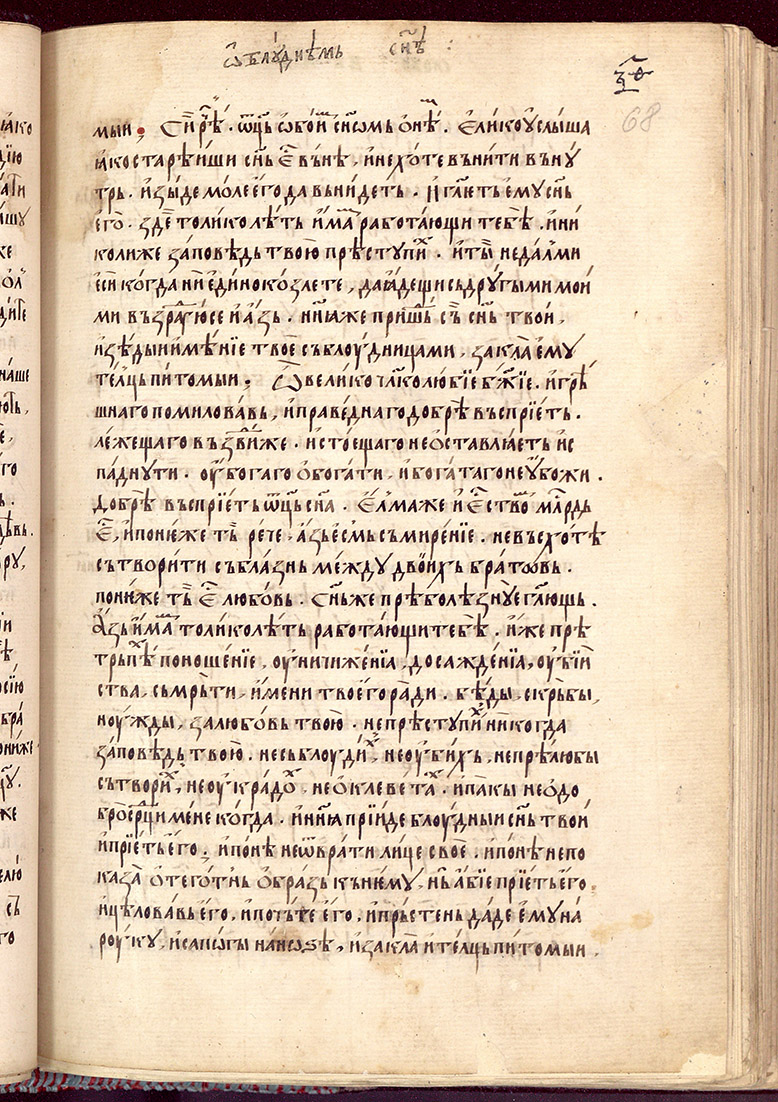 ѡ блꙋ́днѣмь сн҃ѣ :
ѯ҃ѳ
68
мыи . Сїи рⷱ҇ѣ . ѿц҃ь ѡбои́м сн҃омь о́нѣм . Е҆лико ꙋ҆слыша
ꙗ҆ко старѣ́иши сн҃ь е҆го вь́нѣ , и҆ не хо́те вьни́ти вьнꙋ́
трь . и҆зы́де моле е҆го да вьни́деть . и҆ гл҃еть е҆мꙋ сн҃ь
е҆го̀ . зде толи́ко лѣ́ть и҆мамь рабо́тающи тебѣ̀ . и҆ ни
коли́же за́повѣдь твою̀ прѣстꙋпи́х . и҆ ты́ не да́л ми
е҆си ко́гда ни е҆ди́но ко́зле те , да ꙗ҆́деши сь дрꙋгы́ми мои́
ми вьзра́тїюсе и҆ а҆́зь . нн҃ꙗ же прише́дь сь сн҃ь тво́и ,
и҆зѣ́дыи и҆мѣ́нїе твоѐ сь блоу́дницами , закла̀ е҆мꙋ
те́лць пито́мыи . Ѽ вели́ко чл҃колю́бїе бж҃їе . и҆ грѣ́
шнаго поми́ловавь , и҆ пра́веднаго до́брѣ вьспрїе́ть .
ле́жещаго вьздви́же . и҆ сто́ещаго не о҆ставлꙗ́еть и҆с
па́днꙋти . оу҆бо́гаго о҆бога́ти , и҆ бога́таго не ꙋ҆божи .
до́брѣ вьспрїе́ть ѿц҃ь сн҃а . Е҆́лма же и҆ е҆стьство̀м мл҃рдь
е҆сть , и҆ пони́же ть ре́че , а҆́зь е҆́смь сьмире́нїе . не вьсхо́тѣ
сьтвори́ти сьбла́знь ме́ждꙋ двои́хь бра́тѡвь .
пони́же ть е҆сть любо́вь . Сн҃ь же прѣболѣ́знꙋе гл҃ющь .
А҆́зь и҆мамь толи́ко лѣ́ть рабо́тающи тебѣ̀ . и҆́же прѣ
трьпѣ́х поноше́нїе , оу҆ничиже́нїа , досажде́нїа , оу҆бїи́
ства , сьмрьти , и҆́мени твоего ра́ди . бѣ́ды , скрь́бы ,
ноу́жды , за любо́вь твою̀ . не прѣстꙋпи́х ни ко́гда
за́повѣдь твою̀ . не сьблоу́дих , не оу҆би́хь , не прѣлюбы
сьтвори́х , не оу҆кра́дох , не о҆клевета́х . и҆ па́кы не о҆до
мене ко́гда . и҆ нн҃ꙗ прїи́де блоу́дныи сн҃ь тво́и
и҆ прїе́ть е҆го̀ ; и҆ по́нѣ не ѿврати ли́це своѐ . и҆ по́нѣ не по
каза̀ о҆теготнь о҆́бразь кь не́мꙋ , нь а҆́бїе прїе́ть е҆го .
и҆ цѣлова́вь е҆го , и҆ поче́те е҆го , и҆ прь́стень да́де е҆мꙋ на́
роу́кꙋ , и҆ сапо́гы на́ ноѕѣ , и҆ закла̀ и҆ те́лць пито́мыи .